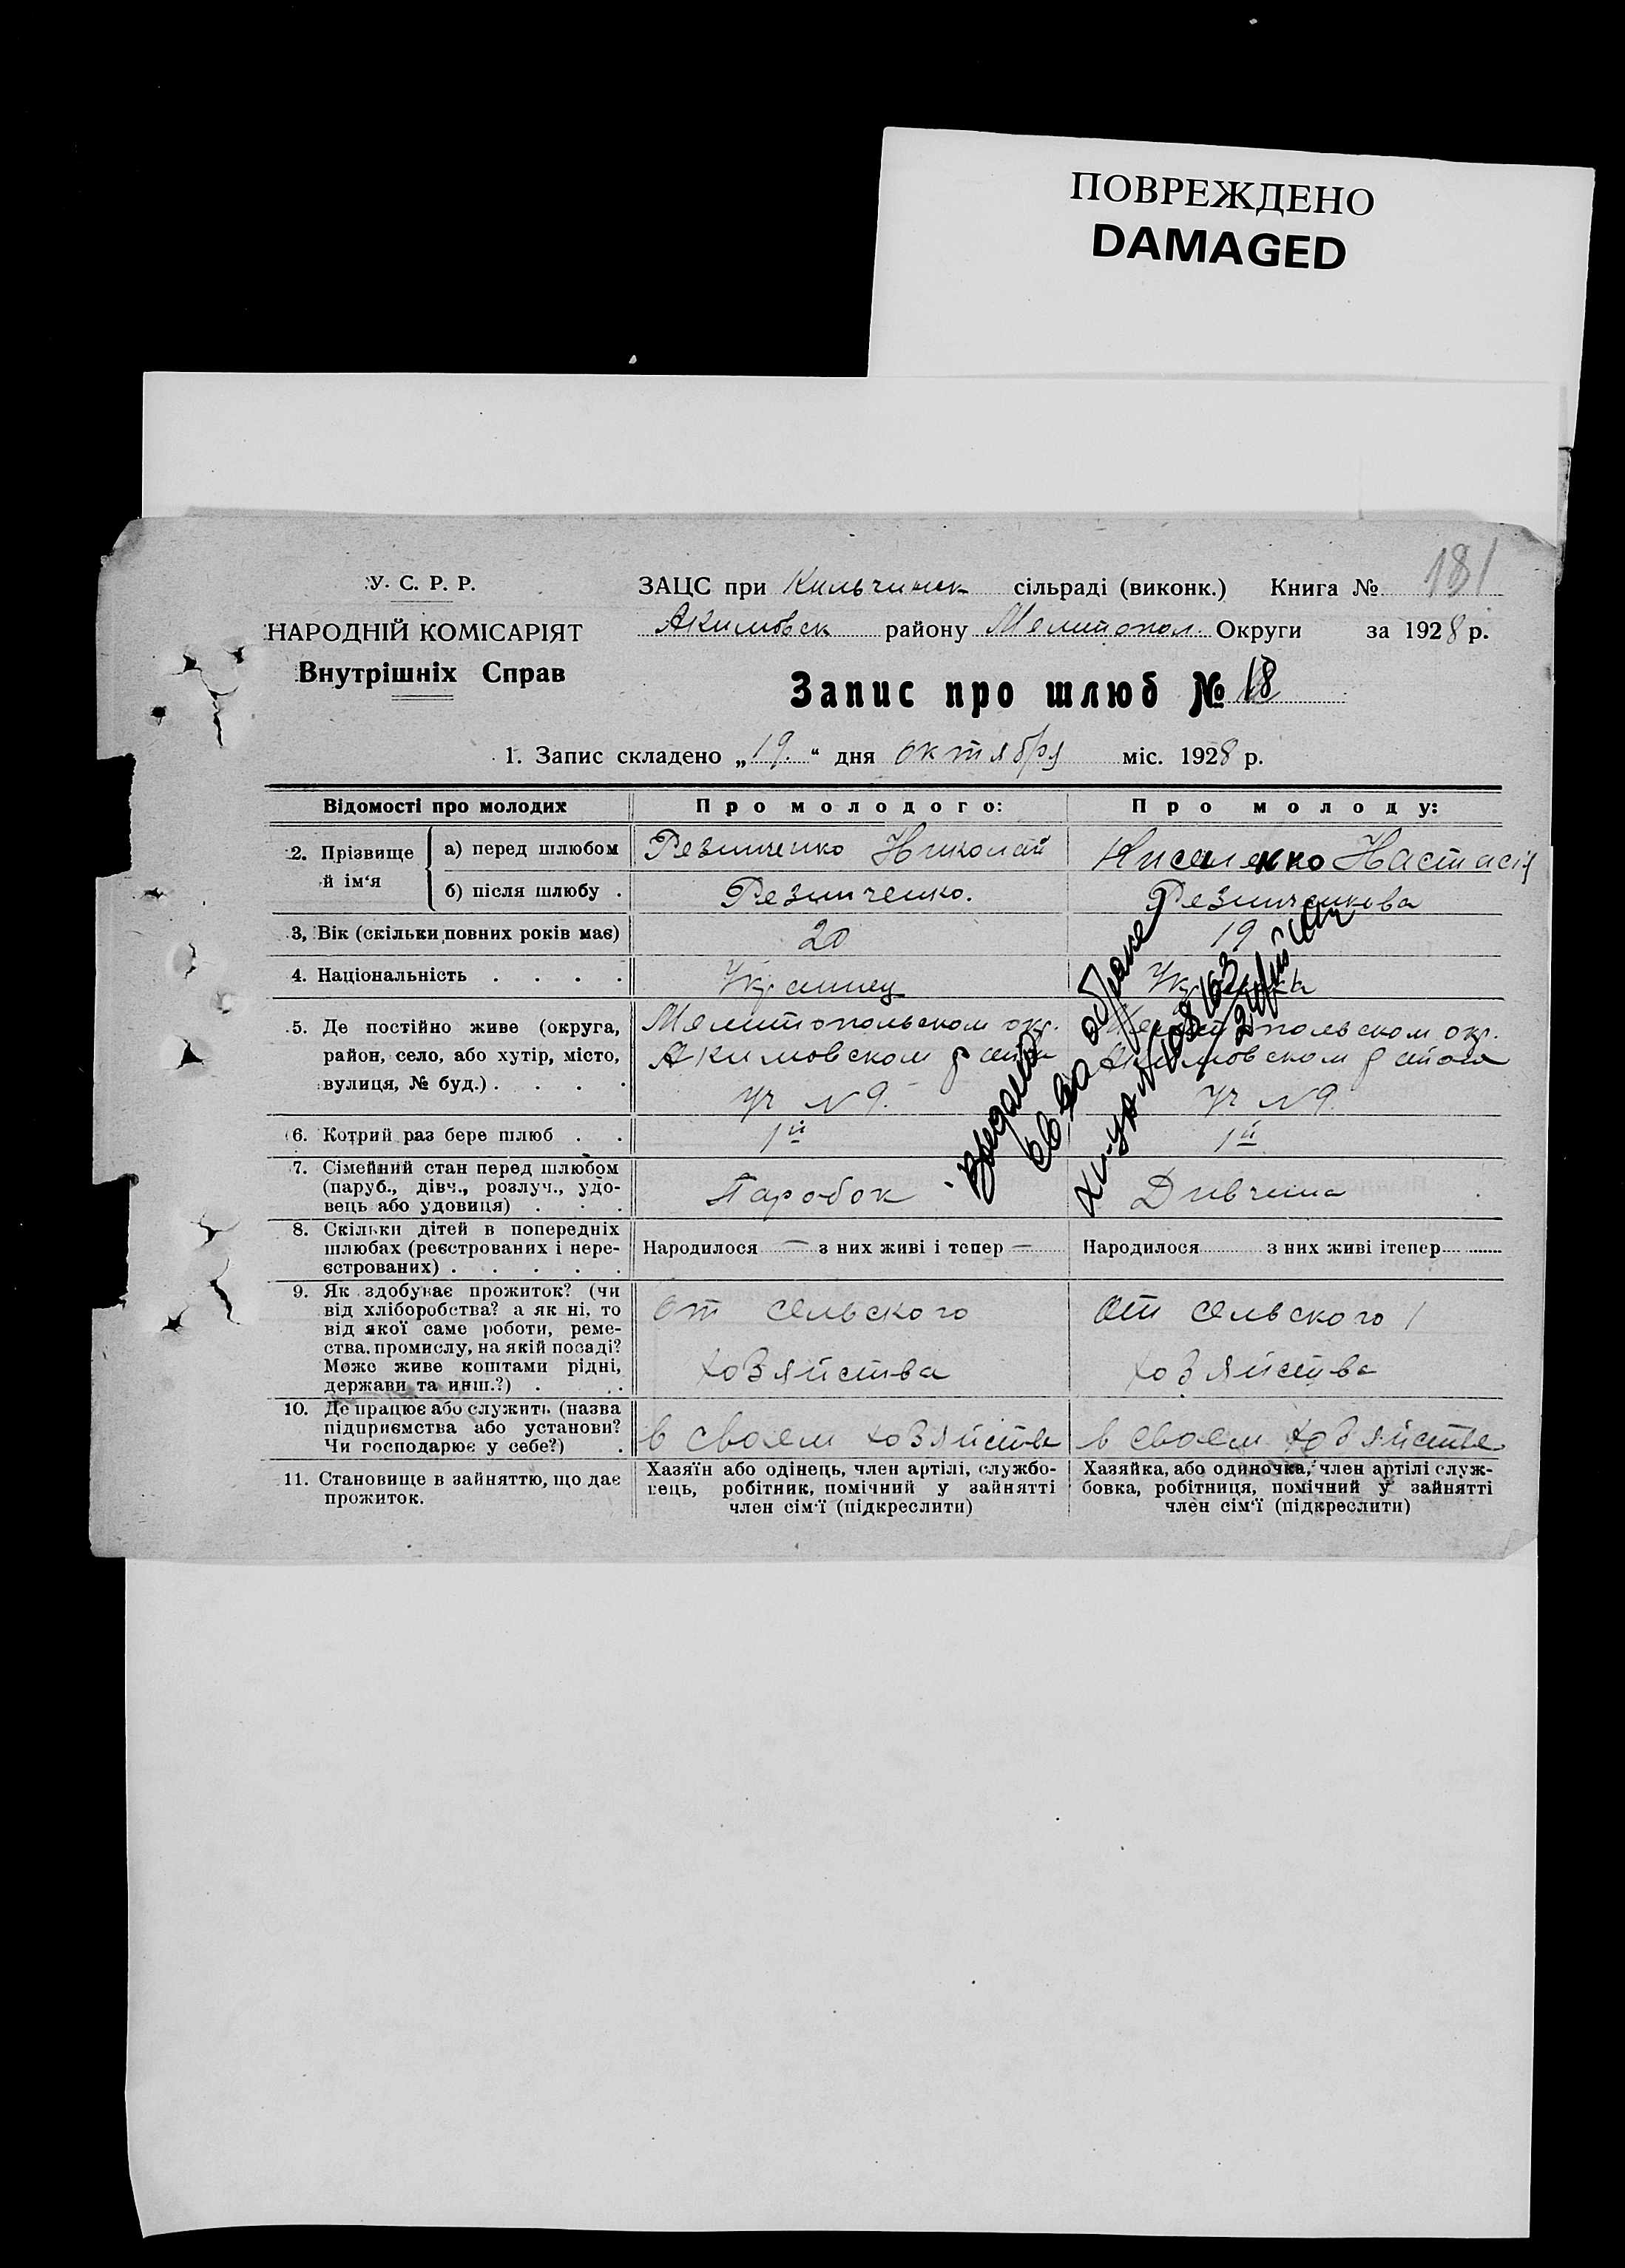 ПОВРЕЖДЕНО
DAMAGED
181
У. С. Р. Р.
НАРОДНІЙ КОМІСАРІЯТ
Внутрішніх Справ
ЗАЦС при Кильчинск сільраді (виконк.) Книга №
Акимовск району Мелитопол. Округи за 1928 р.
Запис про шлюб № 18
1. Запис складено „19.“ дня октября міс. 1928 р.
Відомості про молодих Про молодого: Про молоду:
2. Прізвище й ім‘я
а) перед шлюбом Резниченко Николай Кисиленко Настасія
б) після шлюбу . Резниченко. Резниченкова
3, Вік (скільки повних років має) 20 19
4. Національність . . . . Украинец Украинка
5. Де постійно живе (округа, Мелитопольском окр. Мелитопольском окр.
район, село, або хутір, місто, Акимовском района Акимовском района
вулиця, № буд.) . . . . Уч N 9. Уч N 9
6. Котрий раз бере шлюб . . 1й 1й
7. Сімейний стан перед шлюбом
(паруб., дівч., розлуч., удо-
вець або удовиця) . . . Паробок Дивчина
8. Скільки дітей в попередніх
шлюбах (реєстрованих і нере- Народилося — з них живі і тепер — Народилося з них живі ітепер
єстрованих) . . . . .
9. Як здобуває прожиток? (чи
від хліборобства? а як ні, то От сельского От сельского
від якої саме роботи, реме-
ства, промислу, на якій посаді?
Може живе коштами рідні, хозяйства хозяйства
держави та инш.?) . . .
10. Де працює або служить (назва
підприємства або установи? в своем хозяйстве в своем хозяйстве
Чи господарює у себе?) .
11. Становище в зайняттю, що дає
прожиток.
Хазяїн або одінець, член артілі, службо-
вець, робітник, помічний у зайнятті
член сім‘ї (підкреслити)
Хазяйка, або одиночка, член артілі служ-
бовка, робітниця, помічний у зайнятті
член сім‘ї (підкреслити)
о браке